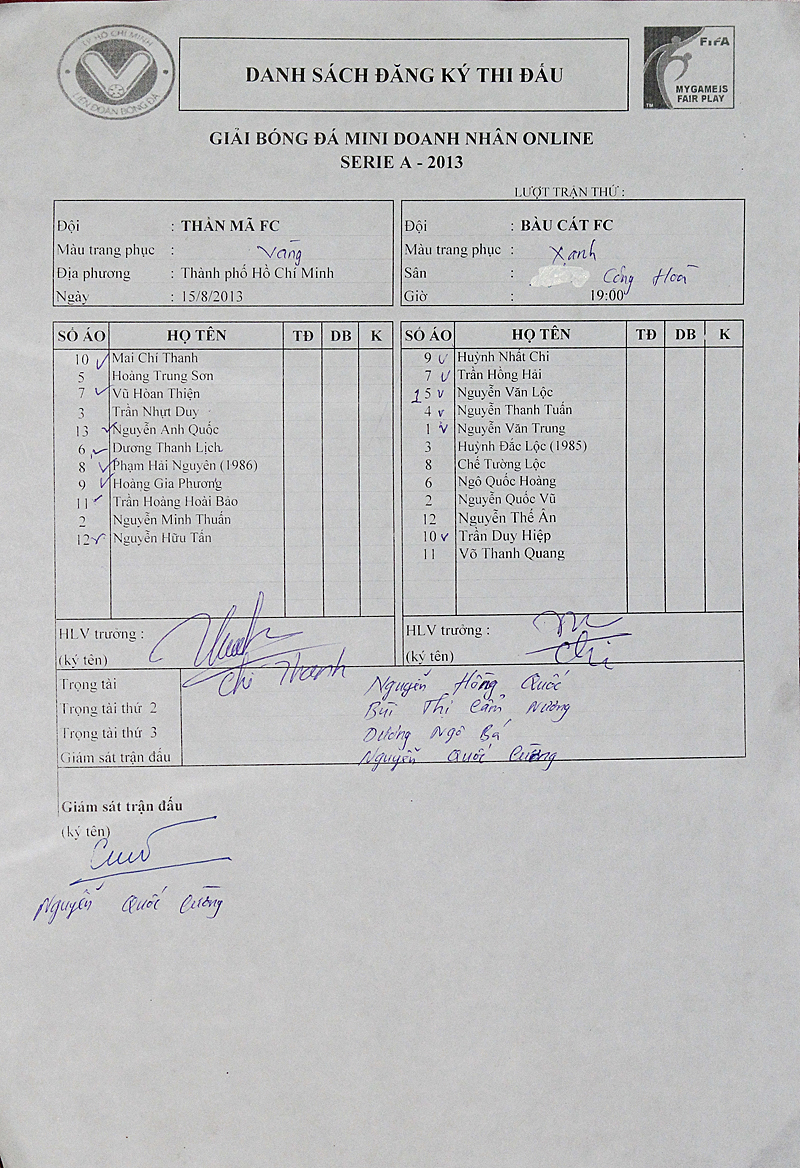 TP HỒ CHÍ MINH
LIÊN ĐOÀN BÓNG ĐÁ
DANH SÁCH ĐĂNG KÝ THI ĐẤU
FIFA
MY GAME IS
FAIR PLAY
TM
GIẢI BÓNG ĐÁ MINI DOANH NHÂN ONLINE
SERIE A - 2013
LƯỢT TRẬN THỨ :
Đội : THẦN MÃ FC
Màu trang phục : Vàng
Địa phương : Thành phố Hồ Chí Minh
Ngày : 15/8/2013
Đội : BÀU CÁT FC
Màu trang phục : Xanh
Sân : Cộng Hoà
Giờ : 19:00
SỐ ÁO HỌ TÊN TĐ DB K
10 ✓ Mai Chí Thanh
5 Hoàng Trung Sơn
7 ✓ Vũ Hòan Thiện
3 Trần Nhựt Duy
13 ✓ Nguyễn Anh Quốc
6 ✓ Dương Thanh Lịch
8 ✓ Phạm Hải Nguyên (1986)
9 ✓ Hoàng Gia Phương
11 ✓ Trần Hoàng Hoài Bảo
2 Nguyễn Minh Thuấn
12 ✓ Nguyễn Hữu Tấn
SỐ ÁO HỌ TÊN TĐ DB K
9 ✓ Huỳnh Nhất Chi
7 ✓ Trần Hồng Hải
15 ✓ Nguyễn Văn Lộc
4 ✓ Nguyễn Thanh Tuấn
1 ✓ Nguyễn Văn Trung
3 Huỳnh Đắc Lộc (1985)
8 Chế Tường Lộc
6 Ngô Quốc Hoàng
2 Nguyễn Quốc Vũ
12 Nguyễn Thế Ân
10 ✓ Trần Duy Hiệp
11 Võ Thanh Quang
HLV trưởng :
(ký tên) Chí Thanh
HLV trưởng :
(ký tên) Chi
Trọng tài Nguyễn Hồng Quốc
Trọng tài thứ 2 Bùi Thị Cẩm Nương
Trọng tài thứ 3 Dương Ngô Bá
Giám sát trận đấu Nguyễn Quốc Cường
Giám sát trận đấu
(ký tên)
Nguyễn Quốc Cường